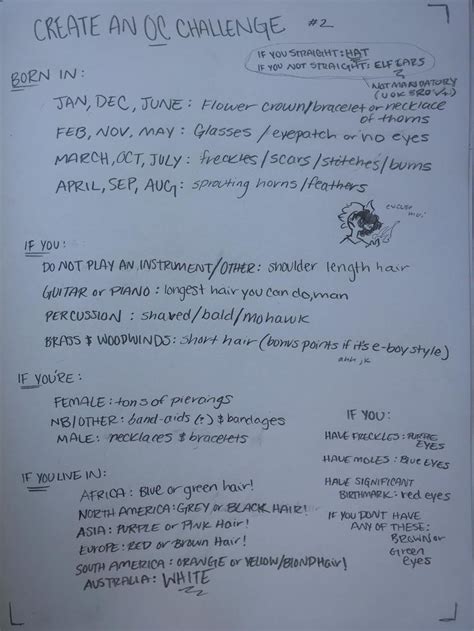 CREATE AN OC CHALLENGE #2
IF YOU STRAIGHT: HAT
IF YOU NOT STRAIGHT: ELF EARS
NOT MANDATORY
BORN IN:
JAN, DEC, JUNE: Flower crown/bracelet or necklace of thorns
FEB, NOV, MAY: Glasses/eyepatch or no eyes
MARCH, OCT, JULY: freckles/scars/stitches/burns
APRIL, SEP, AUG: sprouting horns/feathers
IF YOU:
DO NOT PLAY AN INSTRUMENT/OTHER: shoulder length hair
GUITAR or PIANO: longest hair you can do, man
PERCUSSION: shaved/bald/mohawk
BRASS & WOODWINDS: short hair (bonus points if it's e-boy style)
ahh jk
IF YOU'RE:
FEMALE: tons of piercings
NB/OTHER: band-aids (+) & bandages
MALE: necklaces & bracelets
IF YOU:
HAVE FRECKLES: PURPLE EYES
HAVE MOLES: BLUE EYES
HAVE SIGNIFICANT BIRTHMARK: red eyes
IF YOU DON'T HAVE ANY OF THESE: BROWN or Green eyes
IF YOU LIVE IN:
AFRICA: Blue or green hair!
NORTH AMERICA: GREY or BLACK HAIR!
ASIA: PURPLE or PINK Hair!
EUROPE: RED or Brown Hair!
SOUTH AMERICA: ORANGE or YELLOW/BLOND Hair!
AUSTRALIA: WHITE